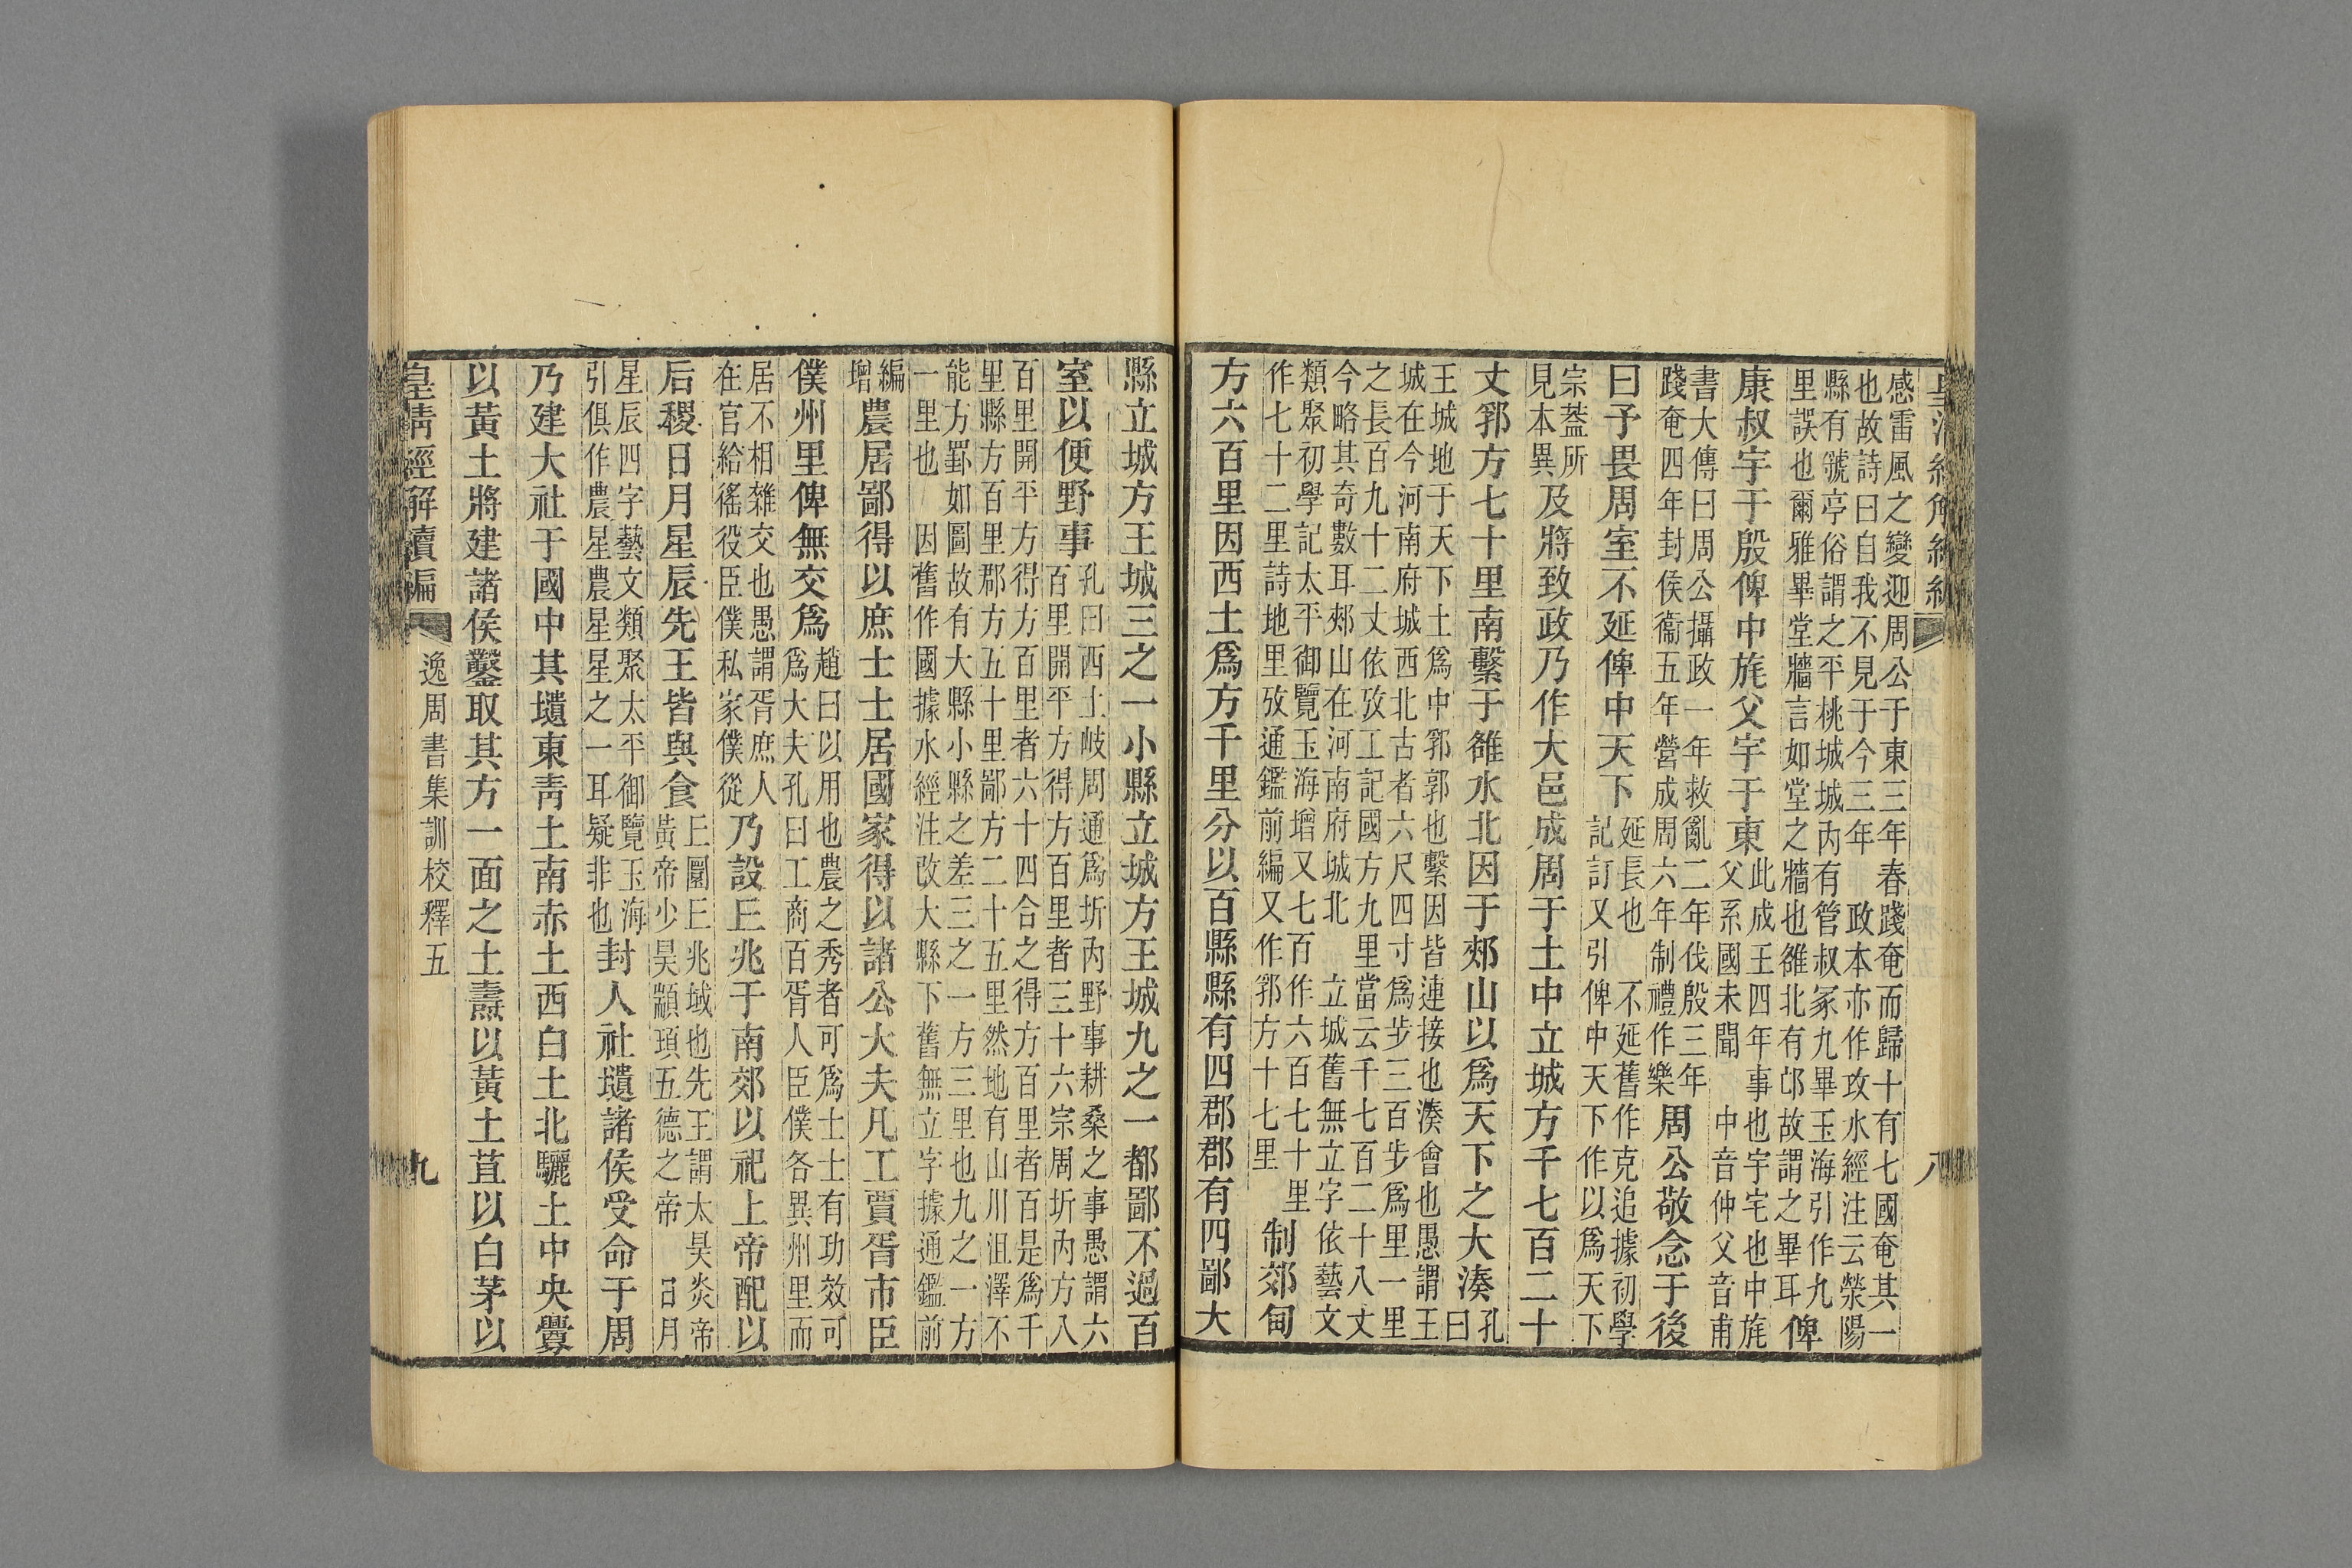 感雷風之變迎周公于東三年春踐奄而歸十有七國奄其一
也故詩曰自我不見于今三年　政本亦作攻水經注云滎陽
縣有虢亭俗謂之平桃城城內有管叔冢九畢玉海引作九
里誤也爾雅畢堂牆言如堂之牆也雒北有邙故謂之畢耳俾
康叔宇于殷俾中旄父宇于東此成王四年事也宇宅也中旄
父系國未聞　中音仲父音甫
書大傳曰周公攝政一年救亂二年伐殷三年
踐奄四年封侯衞五年營成周六年制禮作樂周公敬念于後
曰予畏周室不延俾中天下延長也　不延舊作克追據初學
記訂又引俾中天下作以爲天下
宗蓋所
見本異及將致政乃作大邑成周于土中立城方千七百二十
丈郛方七十里南繫于雒水北因于郟山以爲天下之大湊孔
曰
王城地于天下土爲中郛郭也繫因皆連接也湊會也愚謂王
城在今河南府城西北古者六尺四寸爲步三百步爲里一里
之長百九十二丈依攷工記國方九里當云千七百二十八丈
今略其奇數耳郟山在河南府城北　立城舊無立字依藝文
類聚初學記太平御覽玉海增又七百作六百七十里
作七十二里詩地里攷通鑑前編又作郛方十七里制郊甸
方六百里因西土爲方千里分以百縣縣有四郡郡有四鄙大
縣立城方王城三之一小縣立城方王城九之一都鄙不過百
室以便野事孔曰西土岐周通爲圻內野事耕桑之事愚謂六
百里開平方得方百里者三十六宗周圻內方八
百里開平方得方百里者六十四合之得方百里者百是爲千
里縣方百里郡方五十里鄙方二十五里然地有山川沮澤不
能方罫如圖故有大縣小縣之差三之一方三里也九之一方
一里也　因舊作國據水經注改大縣下舊無立字據通鑑前
編
增農居鄙得以庶士士居國家得以諸公大夫凡工賈胥市臣
僕州里俾無交爲趙曰以用也農之秀者可爲士士有功效可
爲大夫孔曰工商百胥人臣僕各異州里而
居不相雜交也愚謂胥庶人
在官給徭役臣僕私家僕從乃設丘兆于南郊以祀上帝配以
后稷日月星辰先王皆與食丘圜丘兆域也先王謂太昊炎帝
黃帝少昊顓頊五德之帝　日月
星辰四字藝文類聚太平御覽玉海
引俱作農星農星星之一耳疑非也封人社壝諸侯受命于周
乃建大社于國中其壝東靑土南赤土西白土北驪土中央釁
以黃土將建諸侯鑿取其方一面之土燾以黃土苴以白茅以
皇清經解續編　逸周書集訓校釋五　九